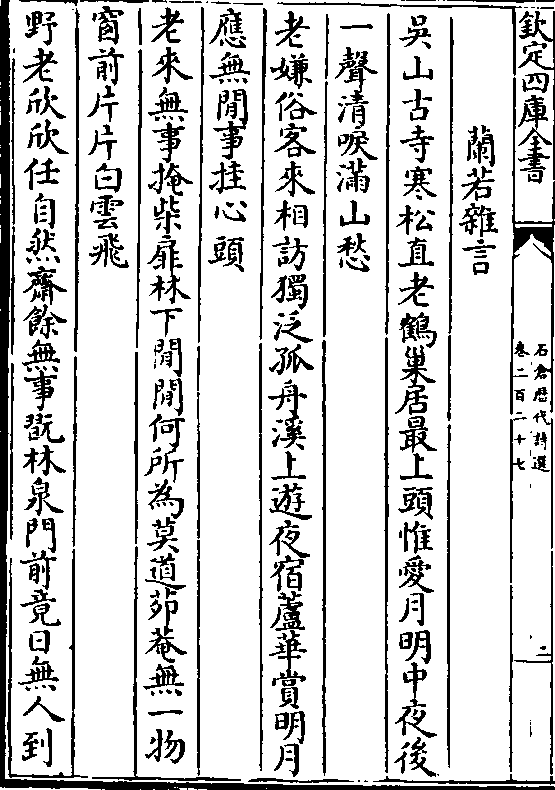 欽定四庫全書
石倉歴代詩選
卷二百二十七
二
蘭若雜言
吳山古寺寒松直老鶴巢居最上頭惟愛月明中夜後
一聲清唳滿山愁
老嫌俗客來相訪獨泛孤舟溪上遊夜宿蘆華賞明月
應無閒事挂心頭
老來無事掩柴扉林下閒閒何所為莫道茆菴無一物
窗前片片白雲飛
野老欣欣任自然齋餘無事翫林泉門前竟日無人到